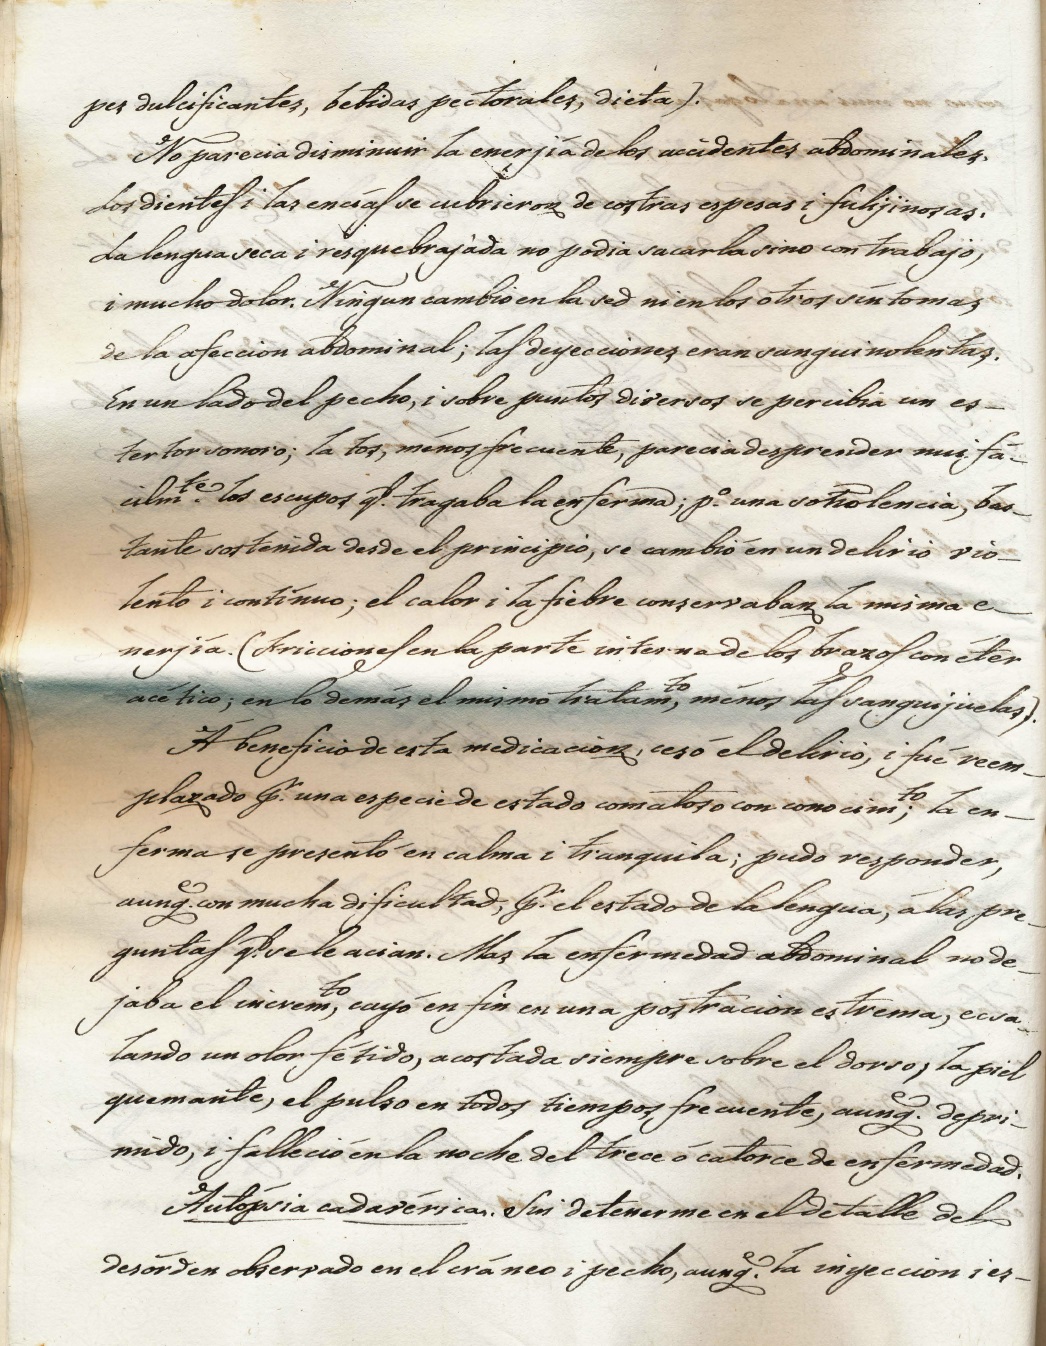 pes dulcificantes, bebidas pectorales, dieta).
No parecia disminuir la enerjía de los accidentes abdominales.
Los dientes i las encías se cubrieron de costras espesas i fulijinosas.
La lengua seca i resquebrajada no podia sacarla sino con trabajo,
i mucho dolor. Ningun cambio en la sed ni en los otros síntomas
de la afeccion abdominal; las deyecciones eran sanguinolentas.
En un lado del pecho, i sobre puntos diversos se percibia un es-
tertor sonoro; la tos, ménos frecuente, parecia desprender mui fá-
cilmte. los escupos q. tragaba la enferma; po. una soñolencia, bas-
tante sostenida desde el principio, se cambió en un delirio vio-
lento i contínuo; el calor i la fiebre conservaban la misma e-
nerjía. (Fricciones en la parte interna de los brazos con éter
acético; en lo demás el mismo tratamto, ménos las sanguijuelas).
Á beneficio de esta medicacion, cesó el delirio, i fué reem-
plazado pr. una especie de estado comatoso con conocimto; la en-
ferma se presentó en calma i tranquila; pudo responder,
aunqe. con mucha dificultad, pr. el estado de la lengua, á las pre-
guntas q. se le acian. Mas la enfermedad abdominal no de-
jaba el incremto, cayó en fin en una postracion estrema, ecsa-
lando un olor fétido, acostada siempre sobre el dorso; la piel
quemante, el pulso en todos tiempos frecuente, aunqe. depri-
mido, i falleció en la noche del trece ó catorce de enfermedad.
Autópsia cadavérica. Sin detenerme en el detalle del
desórden observado en el cráneo i pecho, aunqe. la inyeccion i es-